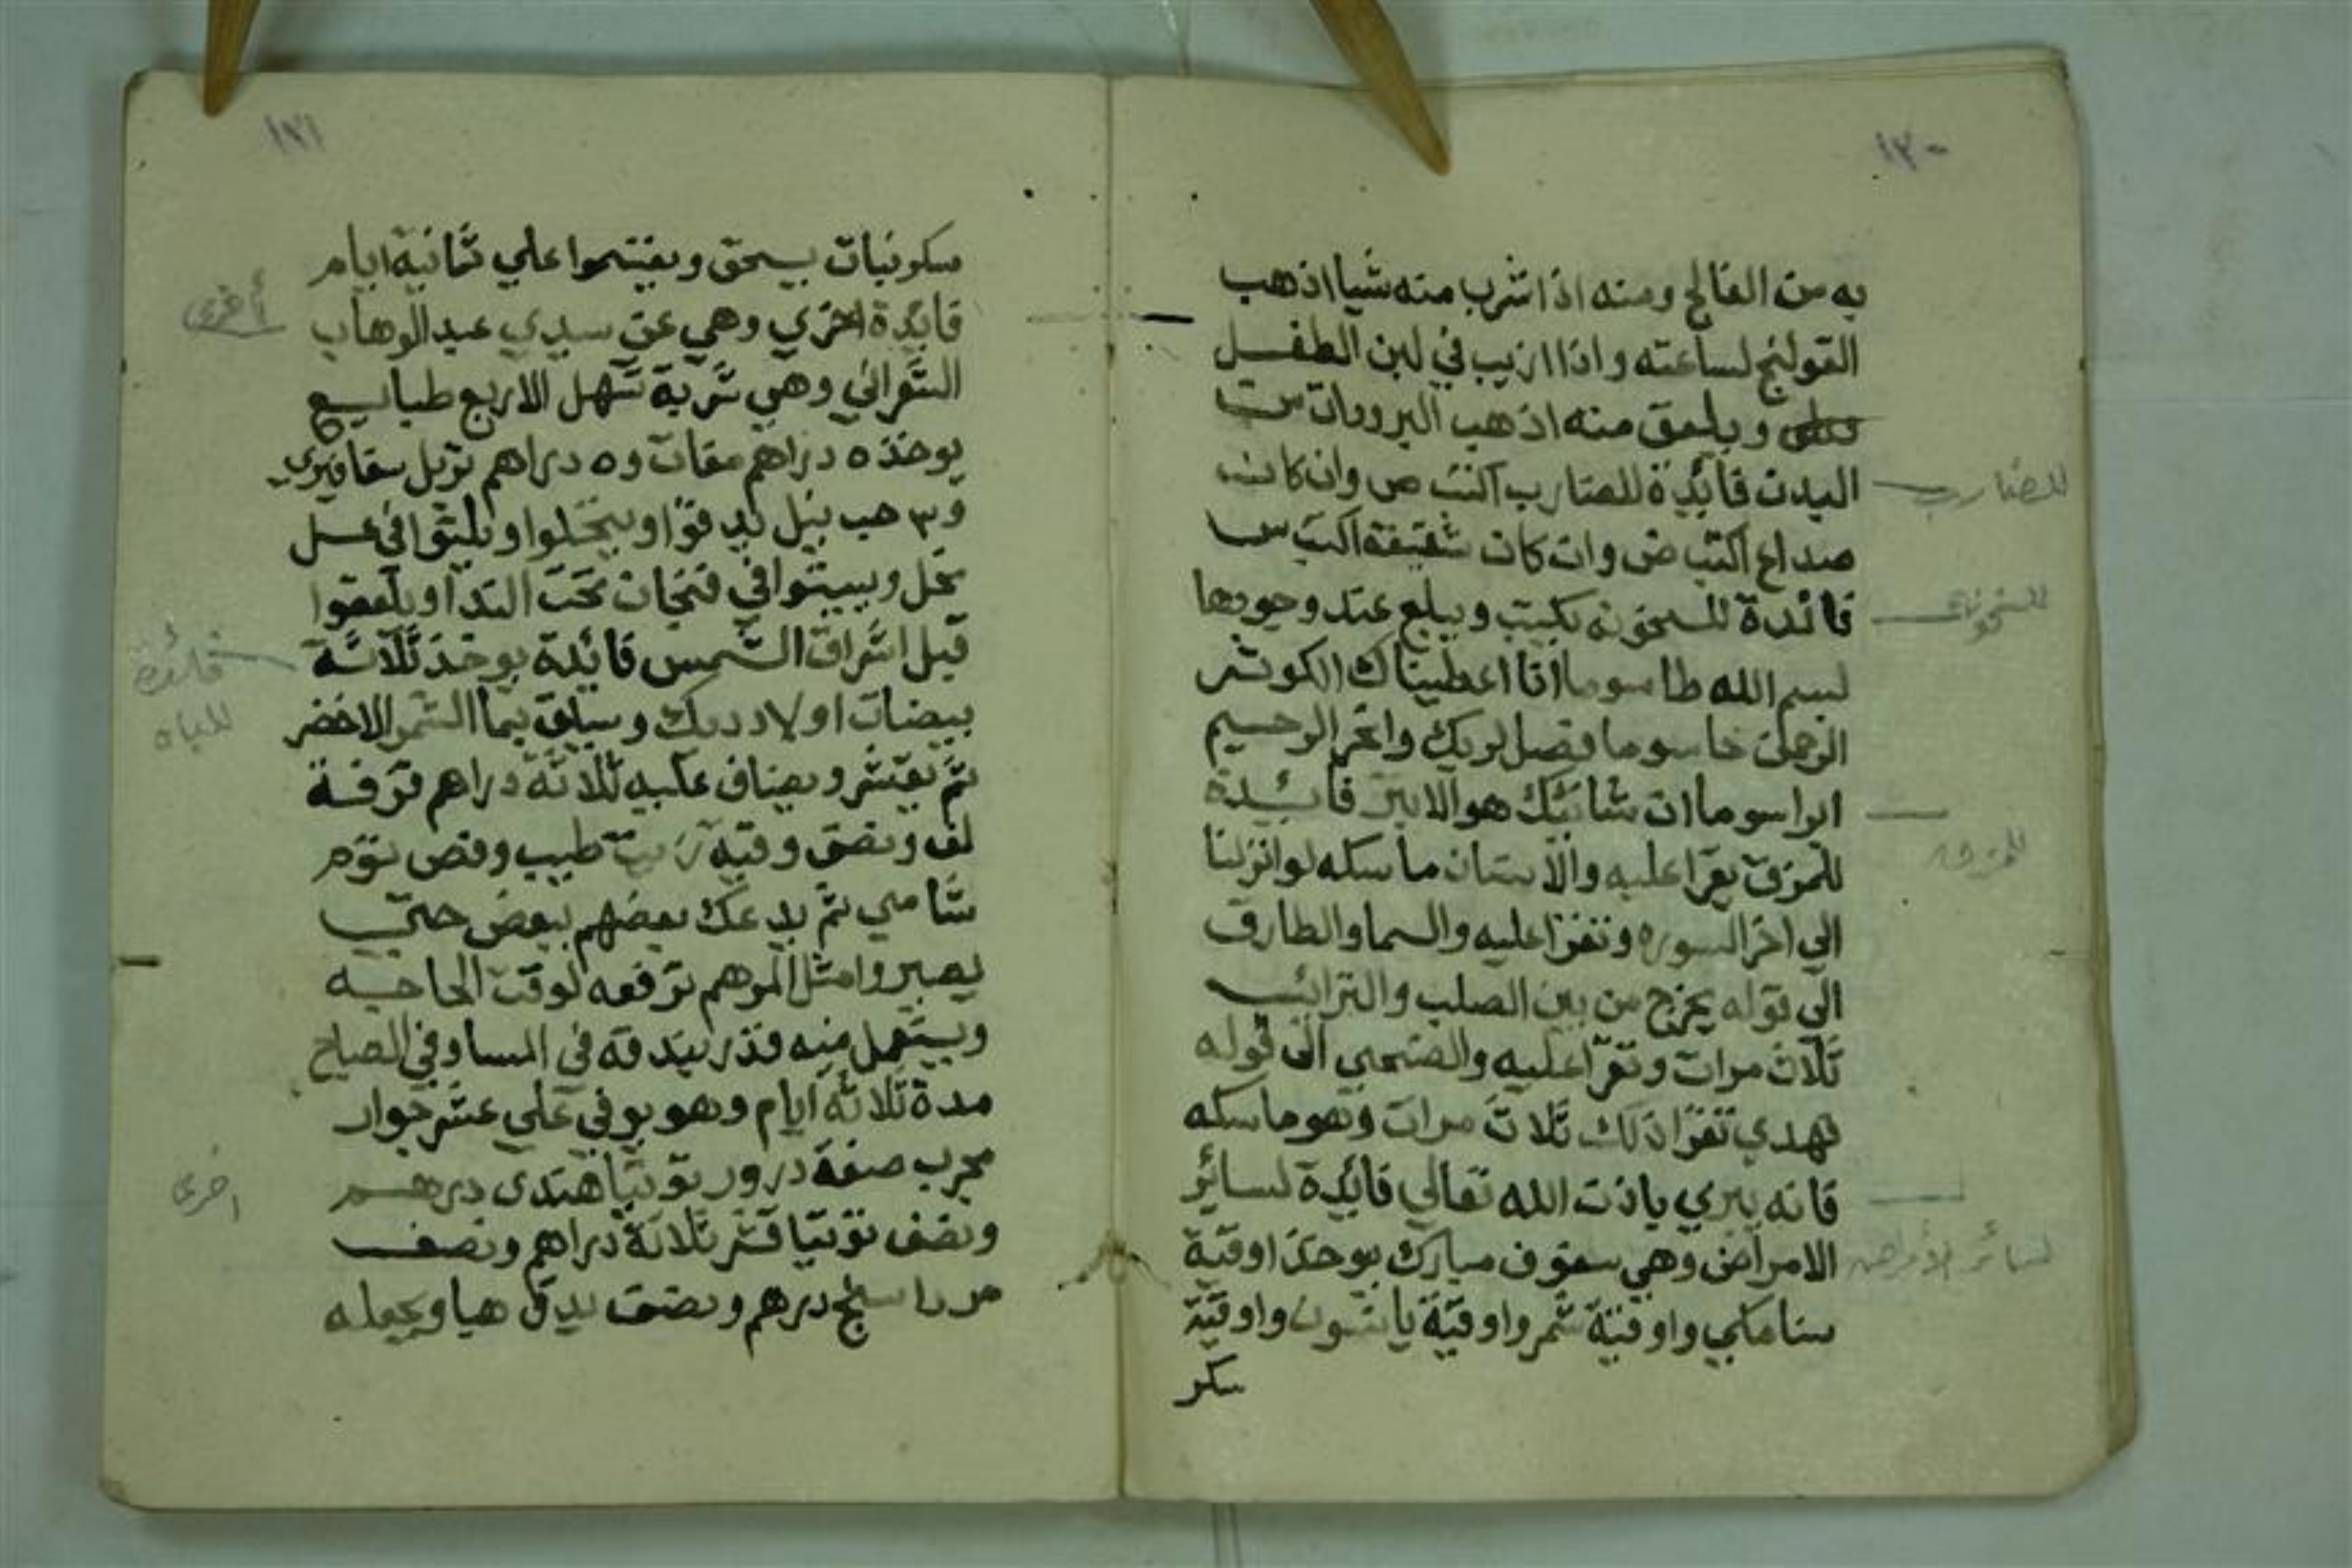 ١٣٠
به من الفالج ومنه اذا شرب منه شيا اذهب
القولنج لساعته واذا ازيب في لبن الطفل
ويلعق منه اذهب البرودات من
البدن فايدة للضارب اكتب ص وان كان
للضارب
صداع اكتب ض وان كان شقيقة اكتب س
فائدة للسخونه يكتب ويبلع عند وجودها
للسخونة
بسم الله طاسوما انا اعطيناك الكوثر
الرحمن خاسوما فصل لربك وانحر الرحيم
ابراسوما ان شانئك هو الابتر فائدة
للمزق يقرا عليه والانسان ماسكه لو انزلنا
الي اخر السوره وتقرا عليه والسما والطارق
الي قوله يخرج من بين الصلب والترائب
ثلاث مرات وتقرا عليه والضحي الي قوله
فهدي تقرا ذلك ثلاث مرات وهو ماسكه
فانه يبري باذن الله تعالي فائدة لسائر
الامراض وهي سفوف مبارك يوخذ اوقية
لسائر الأمراض
سنا مكي واوقية شمر واوقية يانسون واوقية
سكر
١٣١
سكر نبات يسحق ويقتسموا علي ثمانية ايام
فايدة اخري وهي عن سيدي عبد الوهاب
أخرى
الشعراني وهي شربة تسهل الاربع طبايع
يوخذ ٥ دراهم مقات و٥ دراهم تربل سقاقيري
و٣ حب نيل يدقوا وينخلوا ويلتوا في عسل
نحل ويبيتوا في فنجان تحت الندا ويلعقوا
قبل اشراق الشمس فائدة يوخذ ثلاثة
فائدة
للباه
بيضات اولاد ديك ويسلق بما الشمر الاخضر
ثم يقشر ويضاف عليه ثلاثة دراهم قرفة
لف ونصف وقيه زيت طيب وفص ثوم
شامي ثم يدعك بعضهم ببعض حتي
يصيروا مثل المرهم ترفعه لوقت الحاجه
ويستعمل منه قدر بندقه في المسا وفي الصباح
مدة ثلاثه ايام وهو يوفي علي عشر جوار
مجرب صفة درور توتيا هندي درهم
اخرى
ونصف توتيا قشر ثلاثة دراهم ونصف
درهم ونصف يدق هبا ويجعله